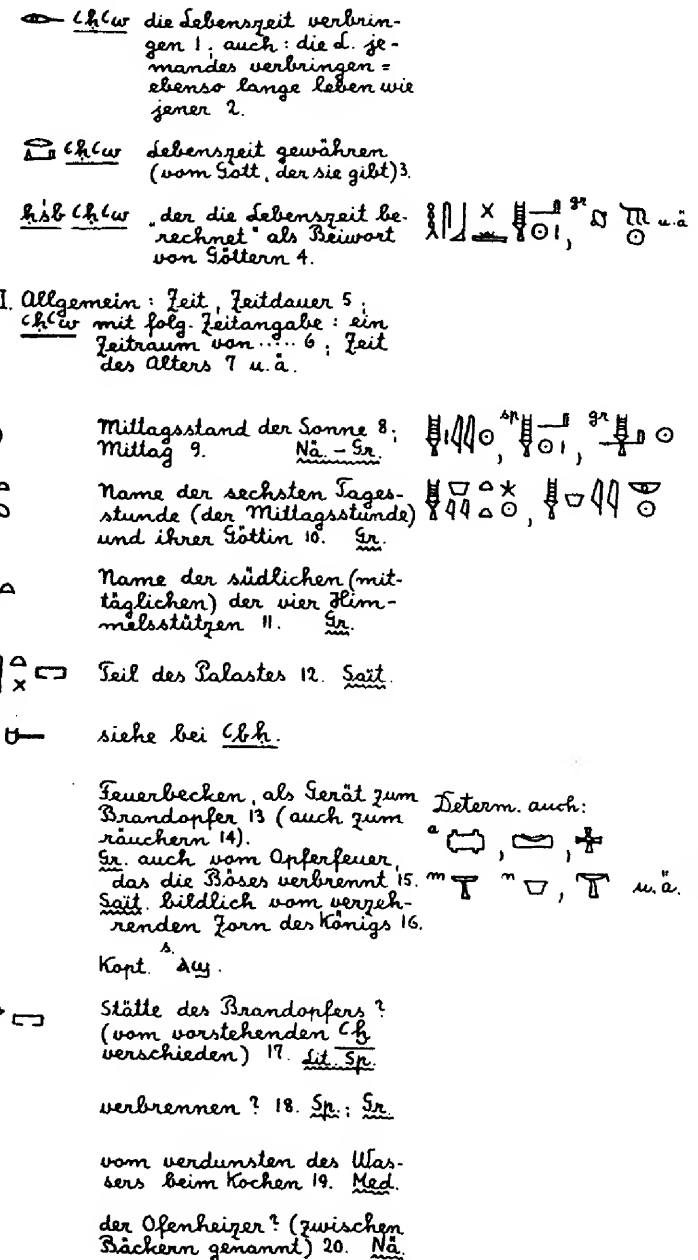 ꜥḥꜥw die Lebenszeit verbrin-
gen 1; auch: die L. je-
mandes verbringen =
ebenso lange leben wie
jener 2.
ꜥḥꜥw Lebenszeit gewähren
(vom Gott, der sie gibt) 3.
ḥśb ꜥḥꜥw „der die Lebenszeit be-
rechnet" als Beiwort
von Göttern 4.
gr
u.ä
I. Allgemein: Zeit, Zeitdauer 5;
ꜥḥꜥw mit folg. Zeitangabe: ein
Zeitraum von ..... 6; Zeit
des Alters 7 u.ä.
Mittagsstand der Sonne 8;
Mittag 9. Nä. – Gr.
sp gr
Name der sechsten Tages-
stunde (der Mittagsstunde)
und ihrer Göttin 10. Gr.
Name der südlichen (mit-
täglichen) der vier Him-
melsstützen 11. Gr.
Teil des Palastes 12. Sait.
siehe bei ꜥbḫ.
Feuerbecken, als Gerät zum
Brandopfer 13 (auch zum
räuchern 14).
Gr. auch vom Opferfeuer,
das die Bösen verbrennt 15.
Sait. bildlich vom verzeh-
renden Zorn des Königs 16.
Kopt. s. ⲁϣ.
Determ. auch:
a
m n u.ä.
Stätte des Brandopfers?
(vom vorstehenden ꜥḫ
verschieden) 17. Lit. Sp.
verbrennen? 18. Sp.; Gr.
vom verdunsten des Was-
sers beim Kochen 19. Med.
der Ofenheizer? (zwischen
Bäckern genannt) 20. Nä.